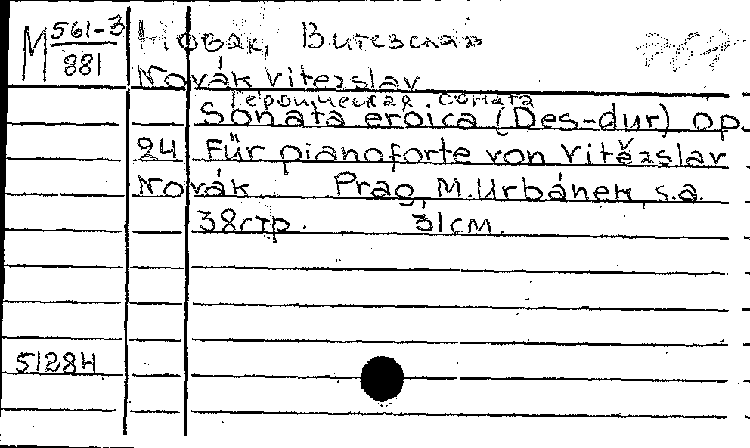 М 561-3/881
Новак, Витезслав
Novák Vitezslav
Героическая соната
Sonata eroica (Des-dur) op.
24 Für pianoforte von Vitězslav
Novák Prag, M. Urbánek, s.a.
38стр. 31см.
5128Н